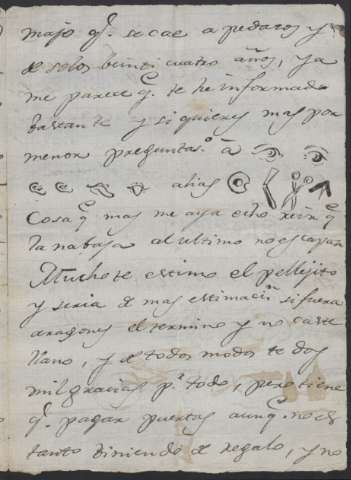 majo q.e se cae a pedazos y
de solos beinti cuatro años, ya
me parece q.e te he informado
bastante y si quieres mas por
menor preguntas.o a
alias
Cosa q.e mas me aya echo reir q.e
la nabaja al ultimo no es
Mucho te estimo el pellejito
y seria de mas estimaci.n si fuera
aragones el termino y no caste
llano, y de todos modos te doy
mil gracias p.r todo, pero tiene
q.e pagar puertas aunq.e no es
tanto biniendo de regalo, y no